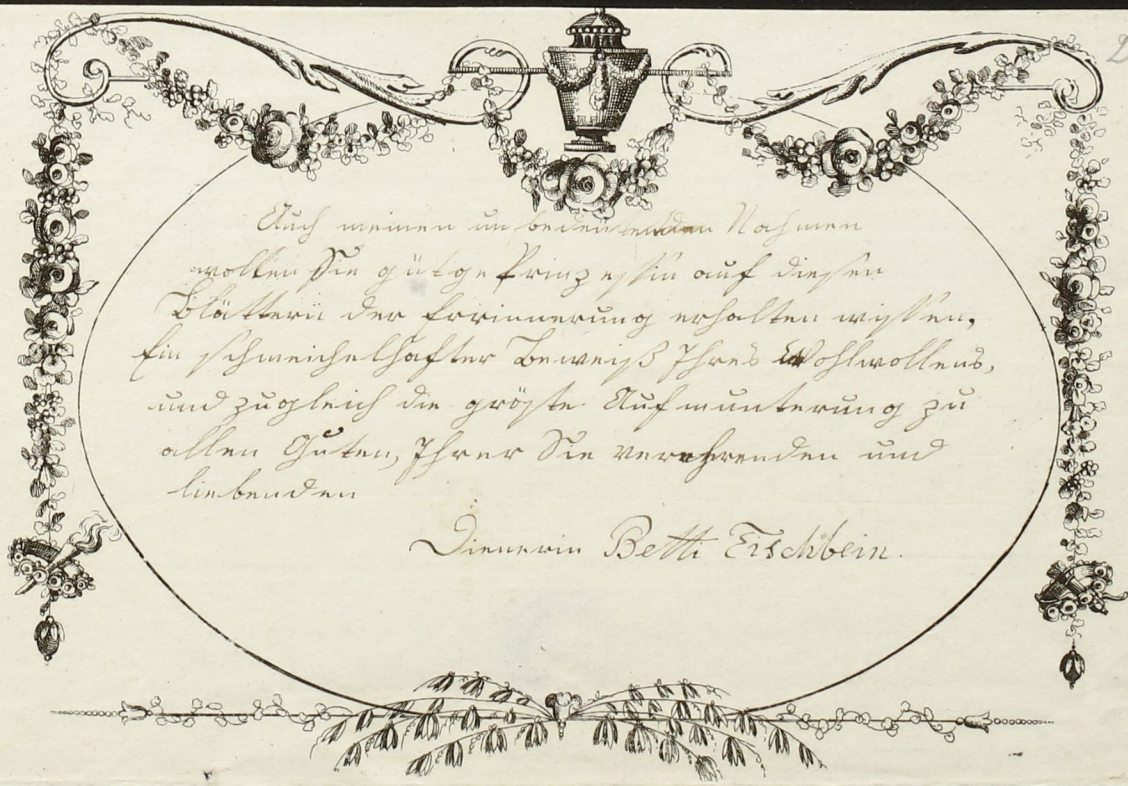 Auch meinen unbedeutenden Nahmen
wolten Sie gütge Prinzessin auf diesen
Blättern der Errinnerung erhalten wissen,
Ein schmeichelhafter Beweiß Ihres Wohlwollens,
und zugleich die gröste Aufmunterung zu
allen Guten, Ihrer Sie verehrenden und
liebenden
Dienerin Betti Tischbein.
2